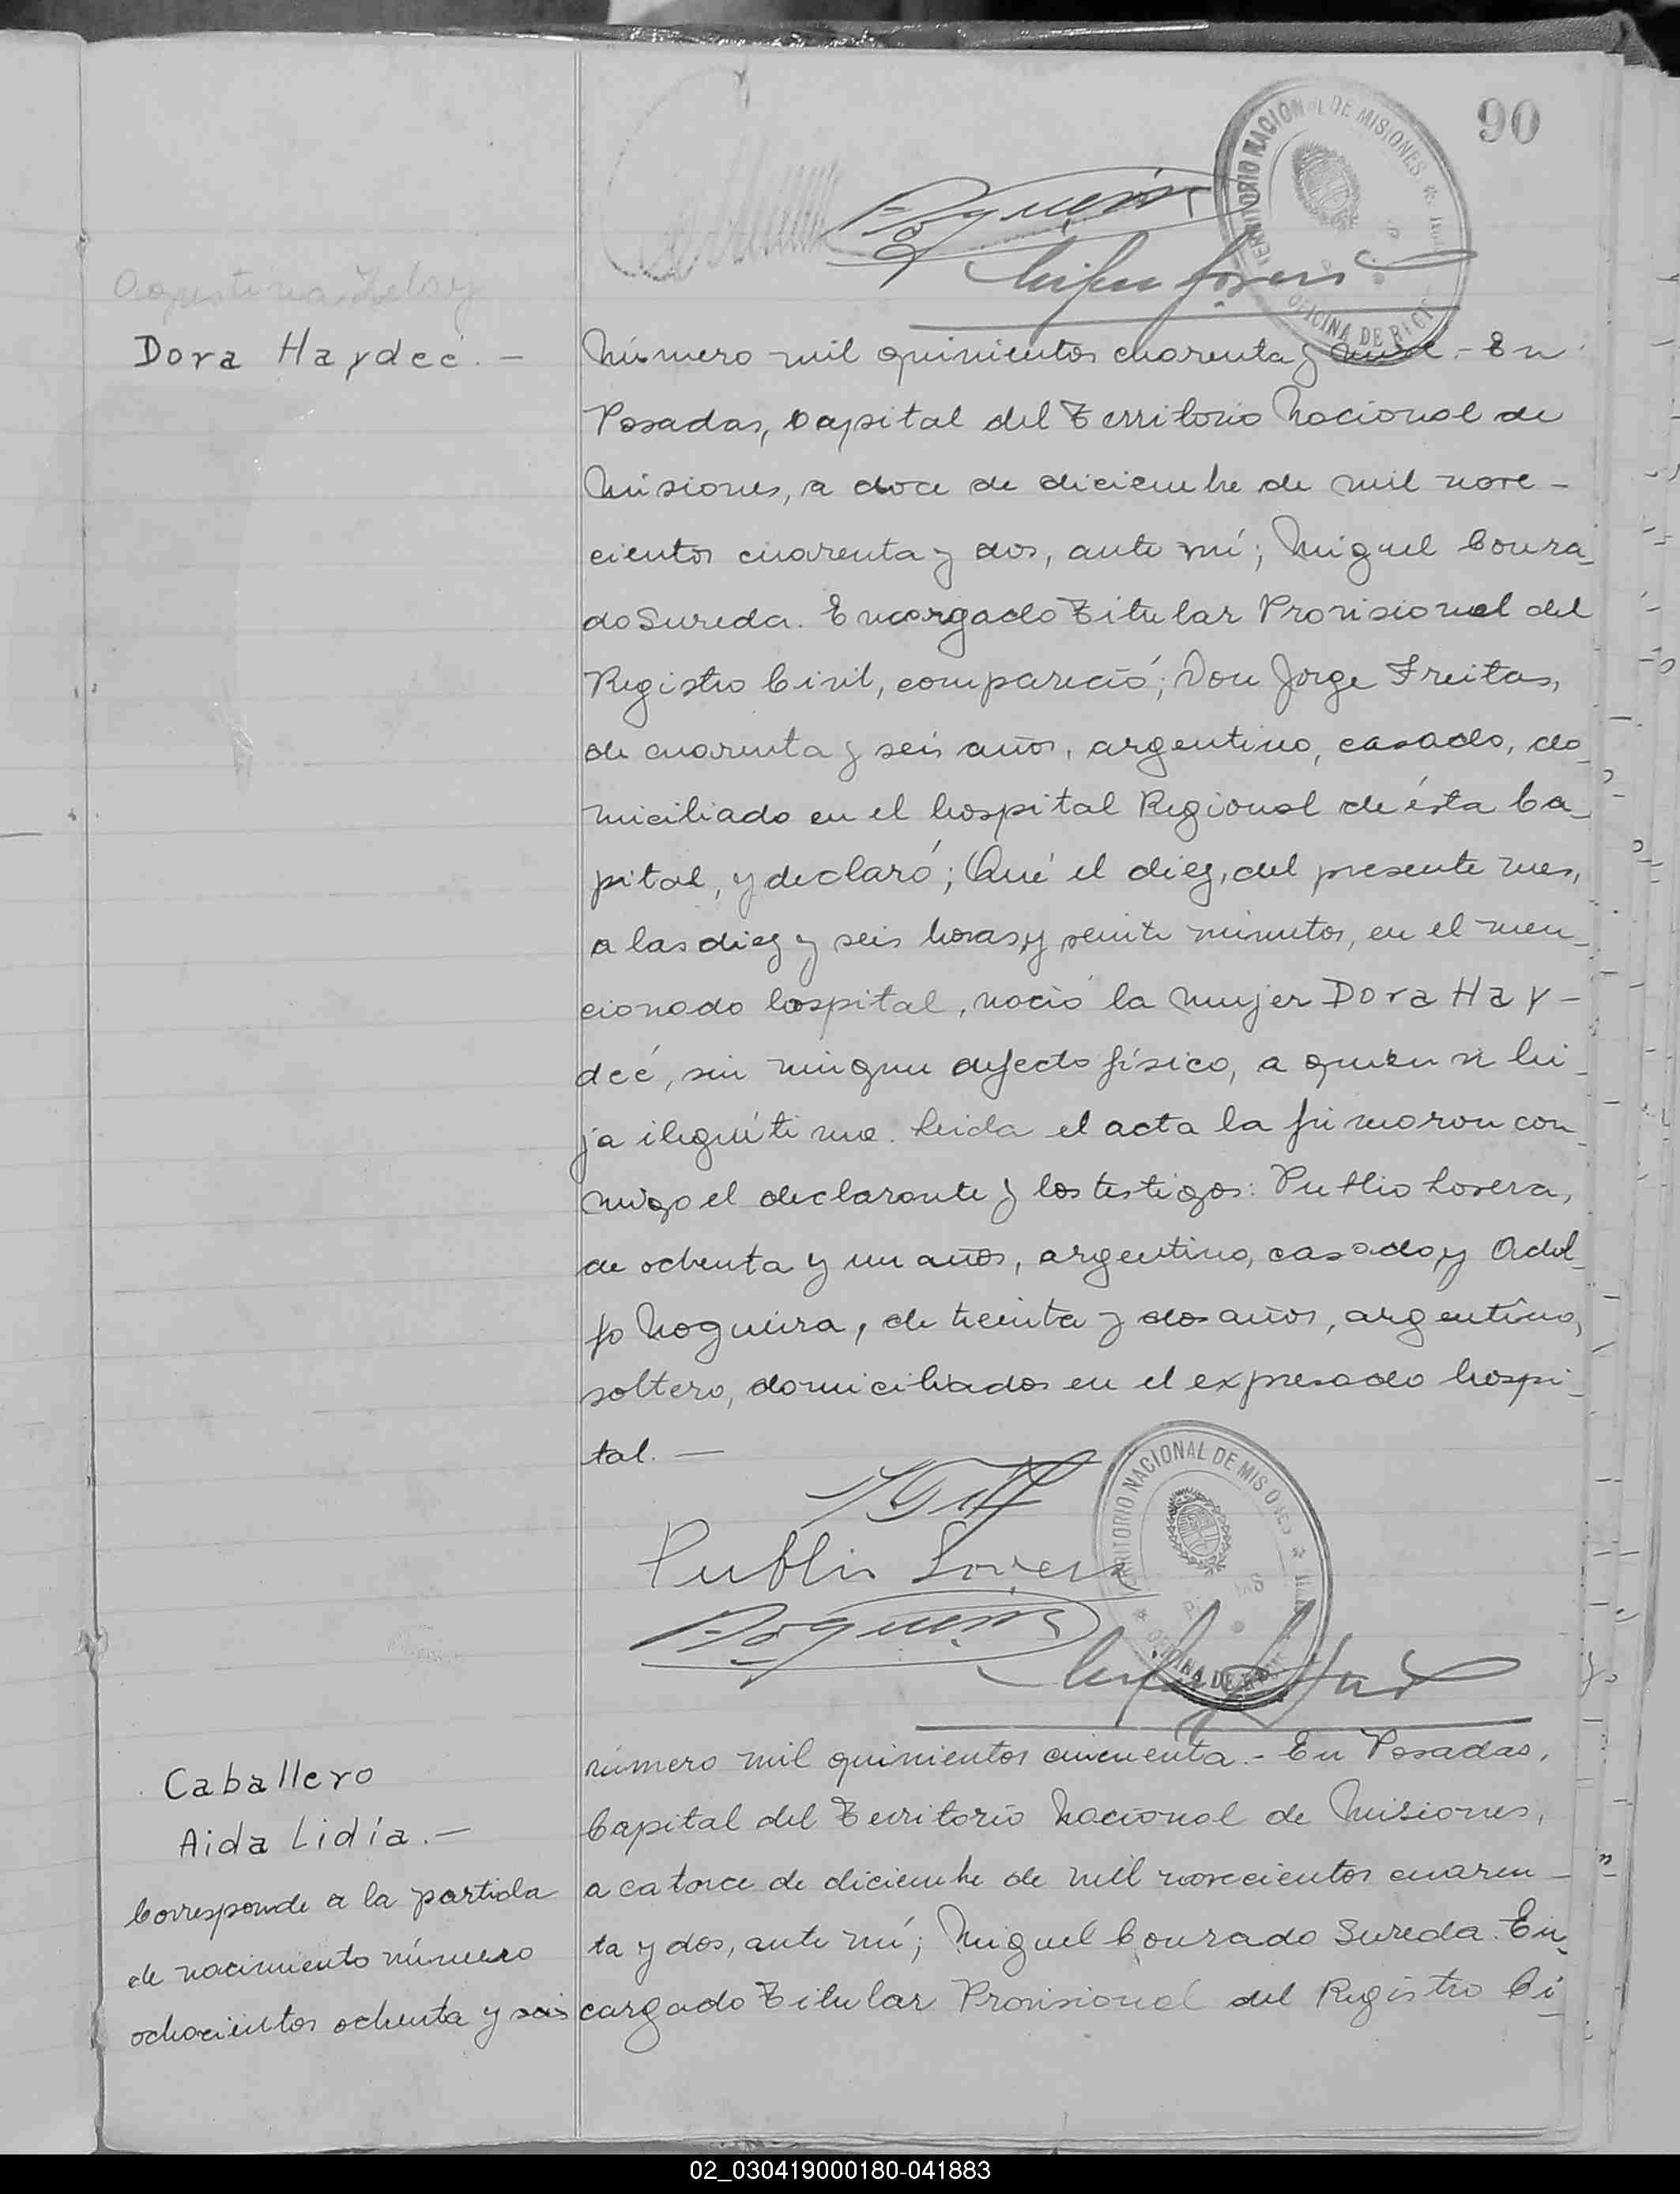 90
TERRITORIO NACIONAL DE MISIONES
OFICINA DE
Agustina
Dora Haydeé. -
Número mil quinientos cuarenta y nueve.- En
Posadas, Capital del Territorio Nacional de
Misiones, a doce de diciembre de mil nove-
cientos cuarenta y dos, ante mí; Miguel Conra-
do Sureda. Encargado Titular Provisional del
Registro Civil, compareció; Don Jorge Freitas,
de cuarenta y seis años, argentino, casado, do-
miciliado en el hospital Regional de ésta Ca-
pital, y declaró; Qué el diez, del presente mes,
a las diez y seis horas, y veinte minutos, en el men-
cionado hospital, nació la mujer Dora Hay-
deé, sin ningun defecto físico, a quien si hi-
ja ilegítima. Leida el acta la firmaron con-
migo el declarante y los testigos: Publio Lovera,
de ochenta y un años, argentino, casado, y Adol-
fo Nogueira, de treinta y dos años, argentino,
soltero, domiciliados en el expresado hospi-
tal. -
TERRITORIO NACIONAL DE MISIONES
Publio Lovera
Nogueira
OFICINA DE
Caballero
Aida Lidia. -
Corresponde a la partida
de nacimiento número
ochocientos ochenta y seis
número mil quinientos cincuenta.- En Posadas,
Capital del Territorio Nacional de Misiones,
a catorce de diciembre de mil novecientos cuaren-
ta y dos, ante mí; Miguel Conrado Sureda. En-
cargado Titular Provisional del Registro Ci-
02_030419000180-041883